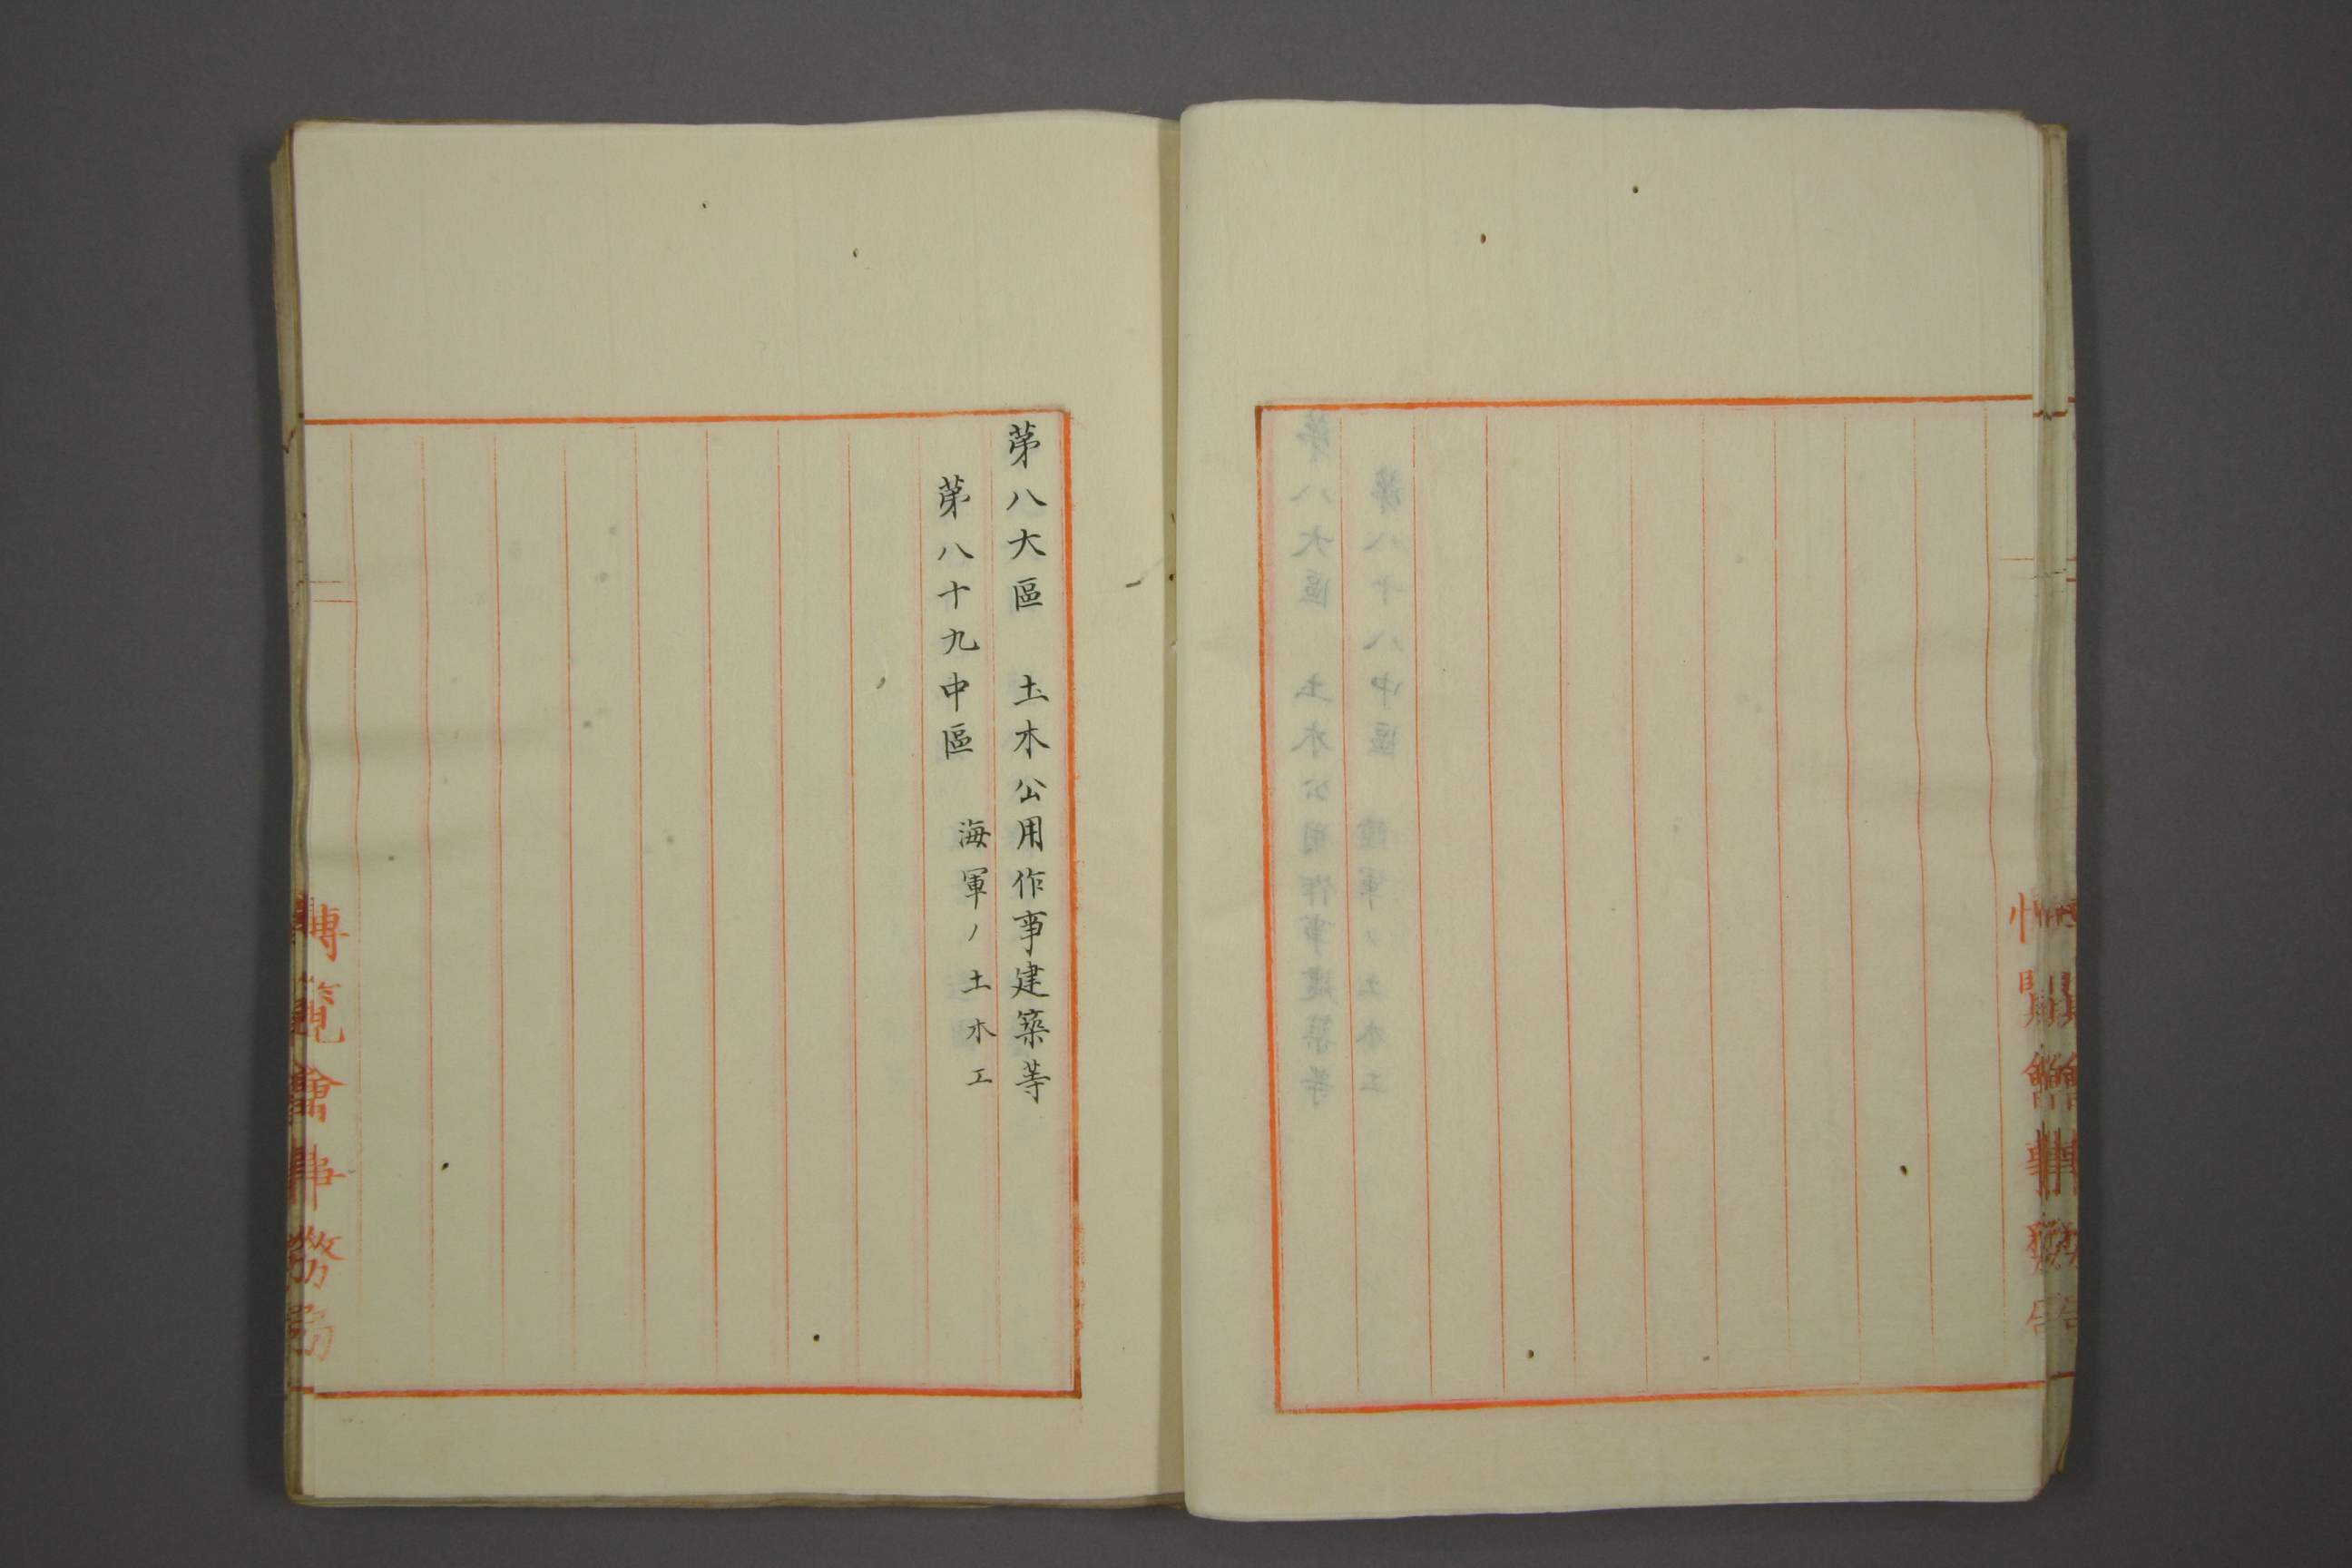 第八大區　土木公用作事建築等
第八十九中區　海軍ノ土木工
博覽會事務局